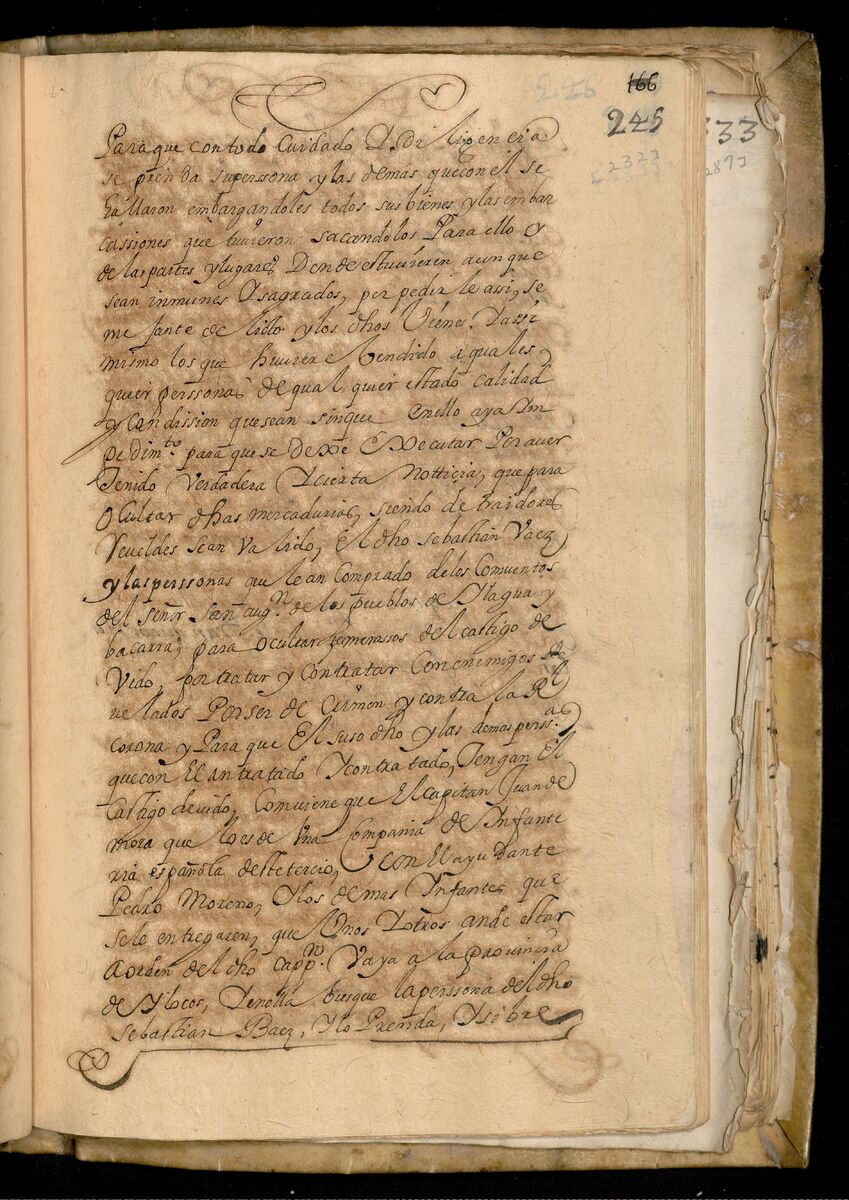 166
245
333
Para que con todo Cuidado Y Diligencia
se prenda su perssona y las demas que con el se
hallaron embargandoles todos sus bienes y las embar
cassiones que tuvieron sacandolos Para ello y
de las partes y lugares Donde estuvieren aunque
sean inmunes O sagrados, por pedirle assi, se
me jante delicto y los dhos Vienes. Y assi
mismo los que huviere Vendido a quales,
quier perssonas de qual quier estado calidad
y Condission que sean sin que en ello aya Im
pedimto. para que se dexe Executar Por aver
Tenido Verdadera Y cierta Notticia, que para
Ocultar dhas mercadurias, siendo de traidores
Reveldes se an Valido, El dho sebastian Vaez
y las perssonas que le an Comprado de los Comventos
del señor San augn. de los pueblos de Ylagua y
bacarra, para ocultar temerossos del castigo de
Vido, por tratar y contratar Con enemigos Re
velados Por ser de Crimen y contra la Rl
Corona y Para que El suso dho y las demas perssas.
que con El an tratado Y contratado, Tengan El
Castigo devido, Comviene que El capitan Juan de
mora que lo es de Una Compania de Infante
ria española deste tercio, Con El ayudante
Pedro Moreno, Y los demas Ynfantes que
se le entregaren, que Unos Y otros an de estar
a orden del dho Cappn. Vaya a la provincia
de Ylocos, Y en olla busque la perssona del dho
sebasthian Baez, Y lo Prenda, Y si bre